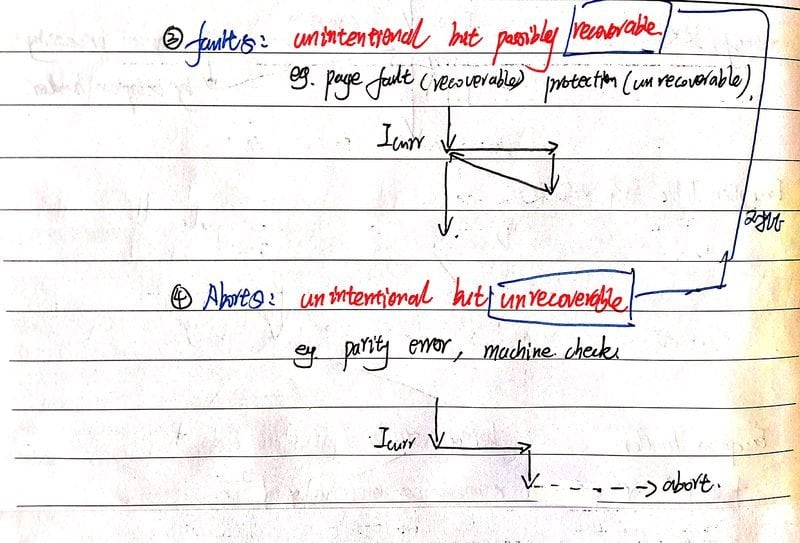 ③ faults: unintentional but possibly recoverable
eg. page fault (recoverable) protection (unrecoverable).
Icurr
④ Aborts: unintentional but unrecoverable
eg. parity error, machine check
Icurr
abort.